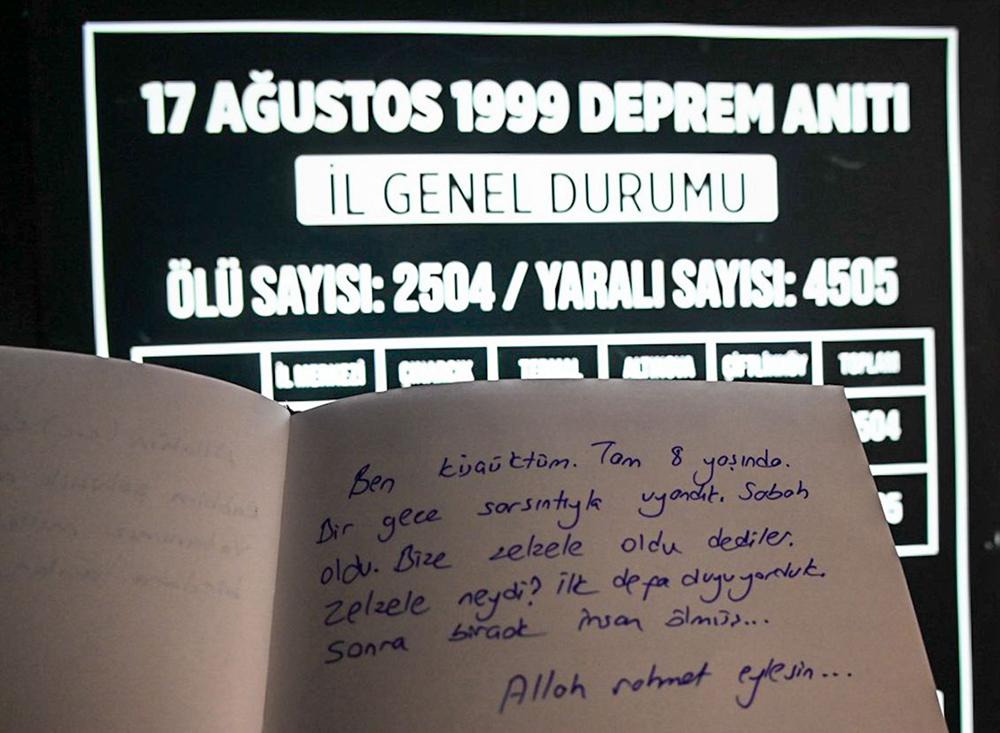 17 AĞUSTOS 1999 DEPREM ANITI
İL GENEL DURUMU
ÖLÜ SAYISI: 2504 / YARALI SAYISI: 4505
İL MERKEZİ ÇINARCIK TERMAL ALTINOVA ÇİFTLİKKÖY TOPLAM
504
Ben küçüktüm. Tam 8 yaşında.
Bir gece sarsıntıyla uyandık. Sabah
oldu. Bize zelzele oldu dediler.
Zelzele neydi? İlk defa duyuyorduk.
Sonra birçok insan ölmüş...
Allah rahmet eylesin...